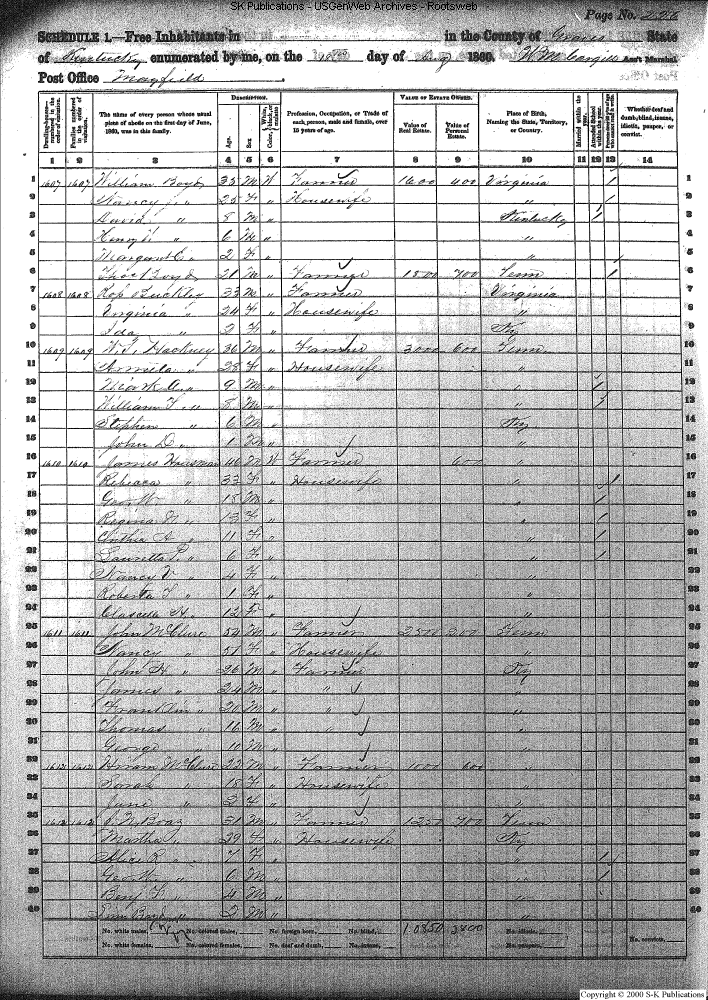 SK Publications - USGenWeb Archives - Rootsweb
Page No. 226
SCHEDULE 1.—Free Inhabitants in in the County of Graves State
of Kentucky enumerated by me, on the day of Aug 1860. Ass't Marshal
Post Office Mayfield
Dwelling-houses—numbered in the order of visitation.
Families numbered in the order of visitation.
The name of every person whose usual place of abode on the first day of June, 1860, was in this family.
DESCRIPTION.
Age.
Sex.
Color, White, black, or mulatto.
Profession, Occupation, or Trade of each person, male and female, over 15 years of age.
VALUE OF ESTATE OWNED.
Value of Real Estate.
Value of Personal Estate.
Place of Birth, Naming the State, Territory, or Country.
Married within the year.
Attended School within the year.
Whether deaf and dumb, blind, insane, idiotic, pauper, or convict.
1 2 3 4 5 6 7 8 9 10 11 12 13 14
1 1607 1607 William Boyd 35 M W Farmer 1600 400 Virginia / 1
2 Nancy " 25 F " Housewife " 2
3 David " 8 M " Kentucky / 3
4 Henry " 6 M " " 4
5 Margaret " 2 F " " 5
6 Boyd 21 M " Farmer 1500 700 Tenn / 6
7 1608 1608 Buckley 33 M " Farmer Virginia 7
8 Virginia " 24 F " Housewife " 8
9 Ida " 2 F " Ky 9
10 1609 1609 Hackney 36 M " Farmer 3000 600 Tenn 10
11 " 28 F " Housewife " 11
12 Mark A. " 9 M " " / 12
13 William T. " 8 M " " / 13
14 Stephen " 6 M " Ky 14
15 John D. " 1 M " " 15
16 1610 1610 James Housman 46 M W Farmer 600 " 16
17 Rebecca " 33 F " Housewife " 17
18 Geo W. " 15 M " " / 18
19 " 13 F " " / 19
20 Cinthia A " 11 F " " / 20
21 Lauretta P. " 6 F " " / 21
22 Nancy V " 4 F " 22
23 Roberta T " 1 F " " 23
24 H. " 12 F " " 24
25 1611 1611 John McClure 54 M " Farmer 2500 200 Tenn 25
26 Nancy " 51 F " Housewife " 26
27 John H " 26 M " Farmer Ky 27
28 James " 24 M " " " 28
29 Franklin " 20 M " " " 29
30 Thomas " 16 M " " " 30
31 George " 10 M " " 31
32 1612 1612 Hiram McClure 22 M " Farmer 1000 600 " 32
33 Sarah " 18 F " Housewife " 33
34 June " 2 F " " 34
35 Boaz 31 M " Farmer 1250 700 Tenn 35
36 Martha " 29 F " Housewife Ky 36
37 Alice R " 7 F " " / 37
38 Geo " 6 M " " / 38
39 Benj F. " 4 M " " 39
40 " 2 M " " 40
No. white males, No. colored males, No. foreign born, No. blind, 10850 3400 No. idiotic,
No. white females, No. colored females, No. deaf and dumb, No. insane, No. paupers, No. convicts,
Copyright © 2000 S-K Publications